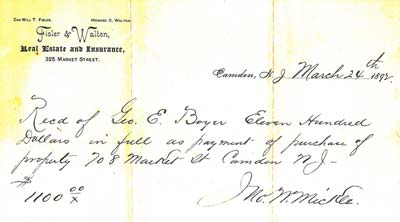 Geo Will T. Fisler. Howard C. Walton.
Fisler & Walton,
Real Estate and Insurance,
325 Market Street.
Camden, N J March 24th 1892.
Recd of Geo. E. Boyer Eleven Hundred
Dollars in full as payment of purchase of
property 708 Market St Camden N J-
$1100 00/x
Jno. W. Mickle.